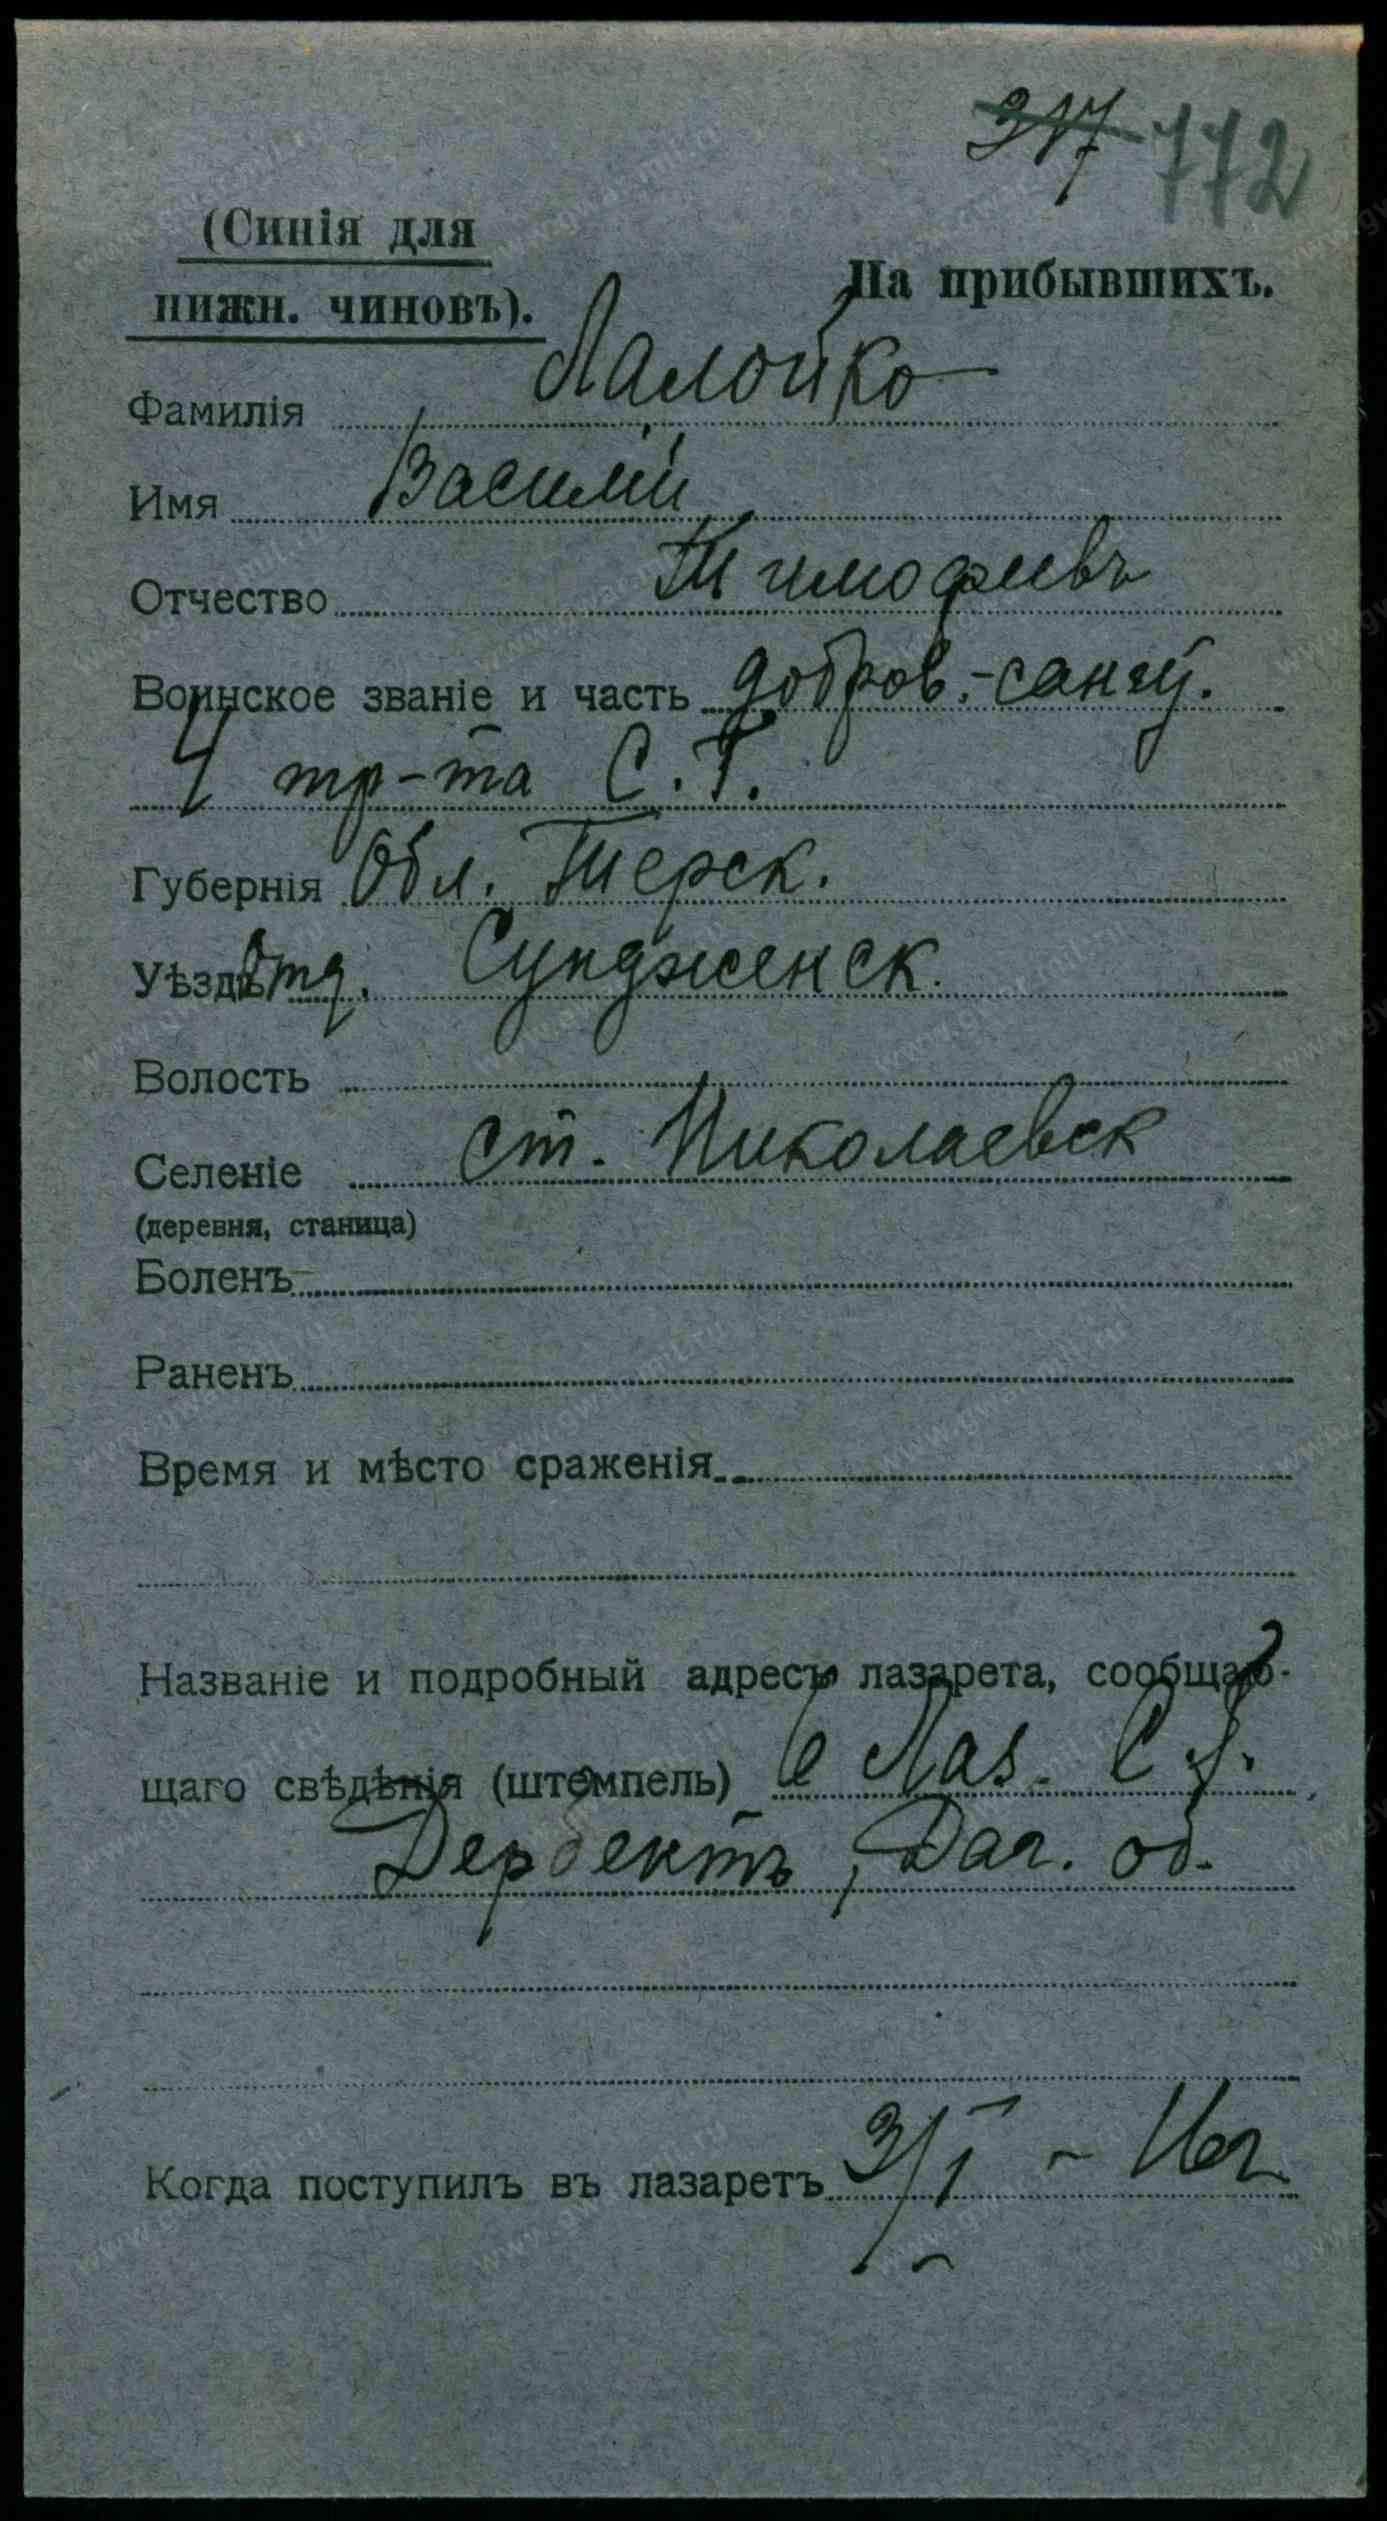 317 772
(Синія для
нижн. чиновъ).
На прибывшихъ.
Фамилія Лалойко
Имя Василій
Отчество Тимофеевъ
Воинское званіе и часть добров.-сан
4 тр-та С. Г.
Губернія Обл. Терск.
Уѣздъ Отд. Сундженск.
Волость
Селеніе ст. Николаевск
(деревня, станица)
Боленъ
Раненъ
Время и мѣсто сраженія
Названіе и подробный адресъ лазарета, сообщаю-
щаго свѣдѣнія (штемпель) 6 Лаз. С
Дербентъ, Даг. об.
Когда поступилъ въ лазаретъ 3/I - 16 г